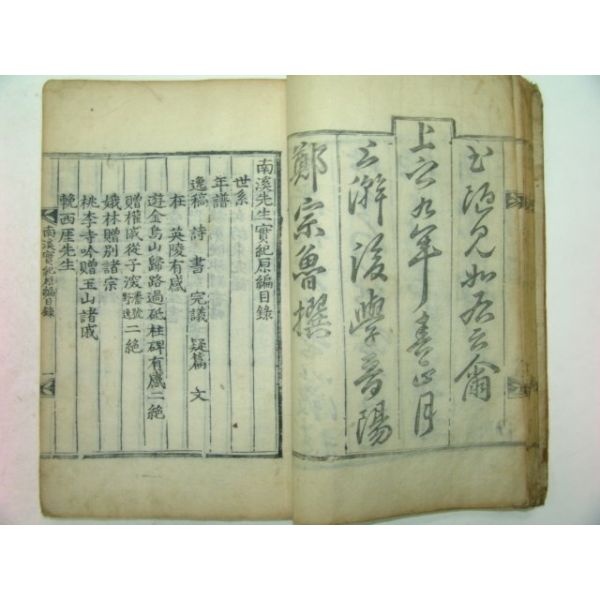 陋見如右云爾
上之九年春正月
澣後學晉陽
鄭宗魯撰
南溪先生實紀原編目錄
世系
年譜
逸稿 詩 書 完議 疑篇 文
在 英陵有感
遊金烏山歸路過砥柱碑有感二絶
贈權戚從子 二絶
娥林贈別諸宗
桃李寺吟贈玉山諸戚
輓西厓先生
南溪實紀原編目錄 一